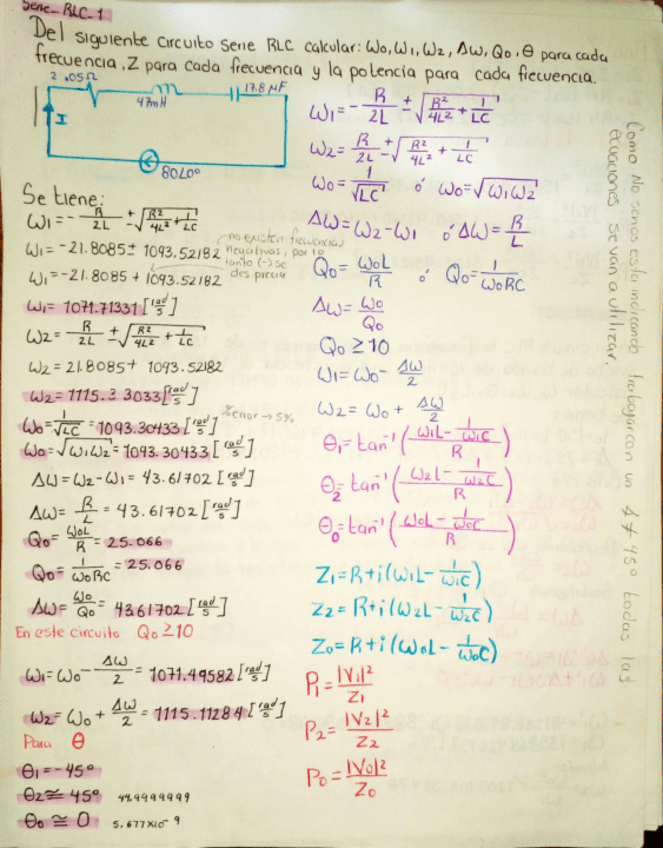 Serie_RLC_1
Del siguiente circuito serie RLC calcular: ω0, ω1, ω2, Δω, Q0, θ para cada
frecuencia, Z para cada frecuencia y la potencia para cada frecuencia.
2.05Ω
47mH
17.8 μF
I
80∠0°
Se tiene:
ω1 = - R/2L ± √(R²/4L² + 1/LC)
ω1 = -21.8085 ± 1093.52182
(no existen frecuencias
negativas, por lo
tanto (-) se
desprecia
ω1 = -21.8085 + 1093.52182
ω1 = 1071.71331 [rad/s]
ω2 = R/2L ± √(R²/4L² + 1/LC)
ω2 = 21.8085 + 1093.52182
ω2 = 1115.33033 [rad/s]
ω0 = 1/√LC = 1093.30433 [rad/s]
% error → 5%
ω0 = √ω1ω2 = 1093.30433 [rad/s]
Δω = ω2 - ω1 = 43.61702 [rad/s]
Δω = R/L = 43.61702 [rad/s]
Q0 = ω0L/R = 25.066
Q0 = 1/ω0RC = 25.066
Δω = ω0/Q0 = 43.61702 [rad/s]
En este circuito Q0 ≥ 10
ω1 = ω0 - Δω/2 = 1071.49582 [rad/s]
ω2 = ω0 + Δω/2 = 1115.11284 [rad/s]
Para θ
θ1 = -45°
θ2 ≅ 45° 44.9999999
θ0 ≅ 0 5.677x10⁻⁹
ω1 = - R/2L ± √(R²/4L² + 1/LC)
ω2 = R/2L ± √(R²/4L² + 1/LC)
ω0 = 1/√LC ó ω0 = √ω1ω2
Δω = ω2 - ω1 ó Δω = R/L
Q0 = ω0L/R ó Q0 = 1/ω0RC
Δω = ω0/Q0
Q0 ≥ 10
ω1 = ω0 - Δω/2
ω2 = ω0 + Δω/2
θ1 = tan⁻¹((ω1L - 1/ω1C)/R)
θ2 = tan⁻¹((ω2L - 1/ω2C)/R)
θ0 = tan⁻¹((ω0L - 1/ω0C)/R)
Z1 = R + i(ω1L - 1/ω1C)
Z2 = R + i(ω2L - 1/ω2C)
Z0 = R + i(ω0L - 1/ω0C)
P1 = |V1|²/Z1
P2 = |V2|²/Z2
P0 = |V0|²/Z0
Como No senos esta indicando trabajar con un ∡ ≠ 45° todas las
ecuaciones se van a utilizar